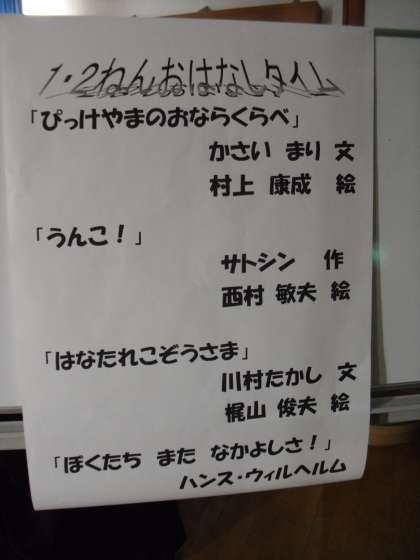 1・2ねんおはなしタイム
「ぴっけやまのおならくらべ」
かさい まり 文
村上 康成 絵
「うんこ！」
サトシン 作
西村 敏夫 絵
「はなたれこぞうさま」
川村たかし 文
梶山 俊夫 絵
「ぼくたち また なかよしさ！」
ハンス・ウィルヘルム